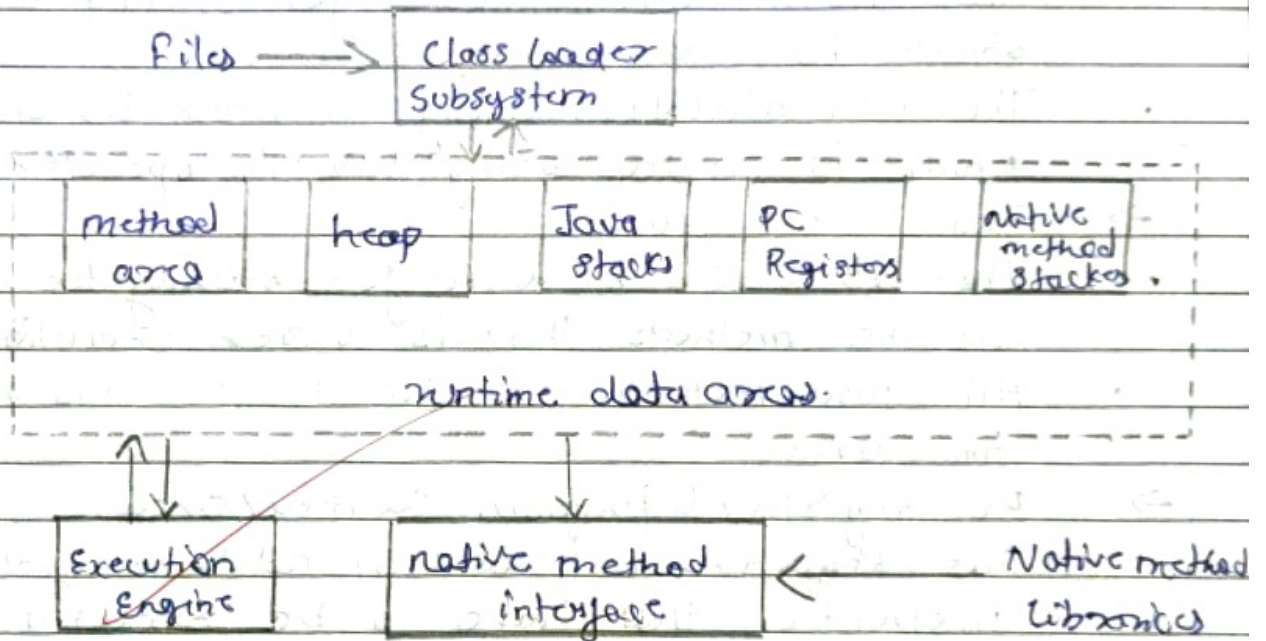 Files
Class loader
Subsystem
method
area
heap
Java
stacks
PC
Registors
Native
method
stackes.
runtime data areas.
Execution
Engine
native method
interface
Native method
libraries